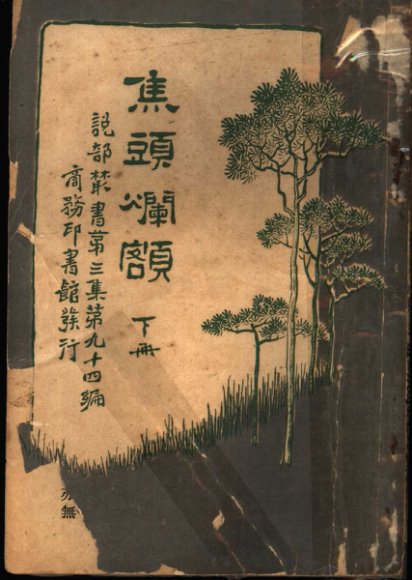 焦頭爛額
下冊
說部叢書第三集第九十四編
商務印書館發行
亦無